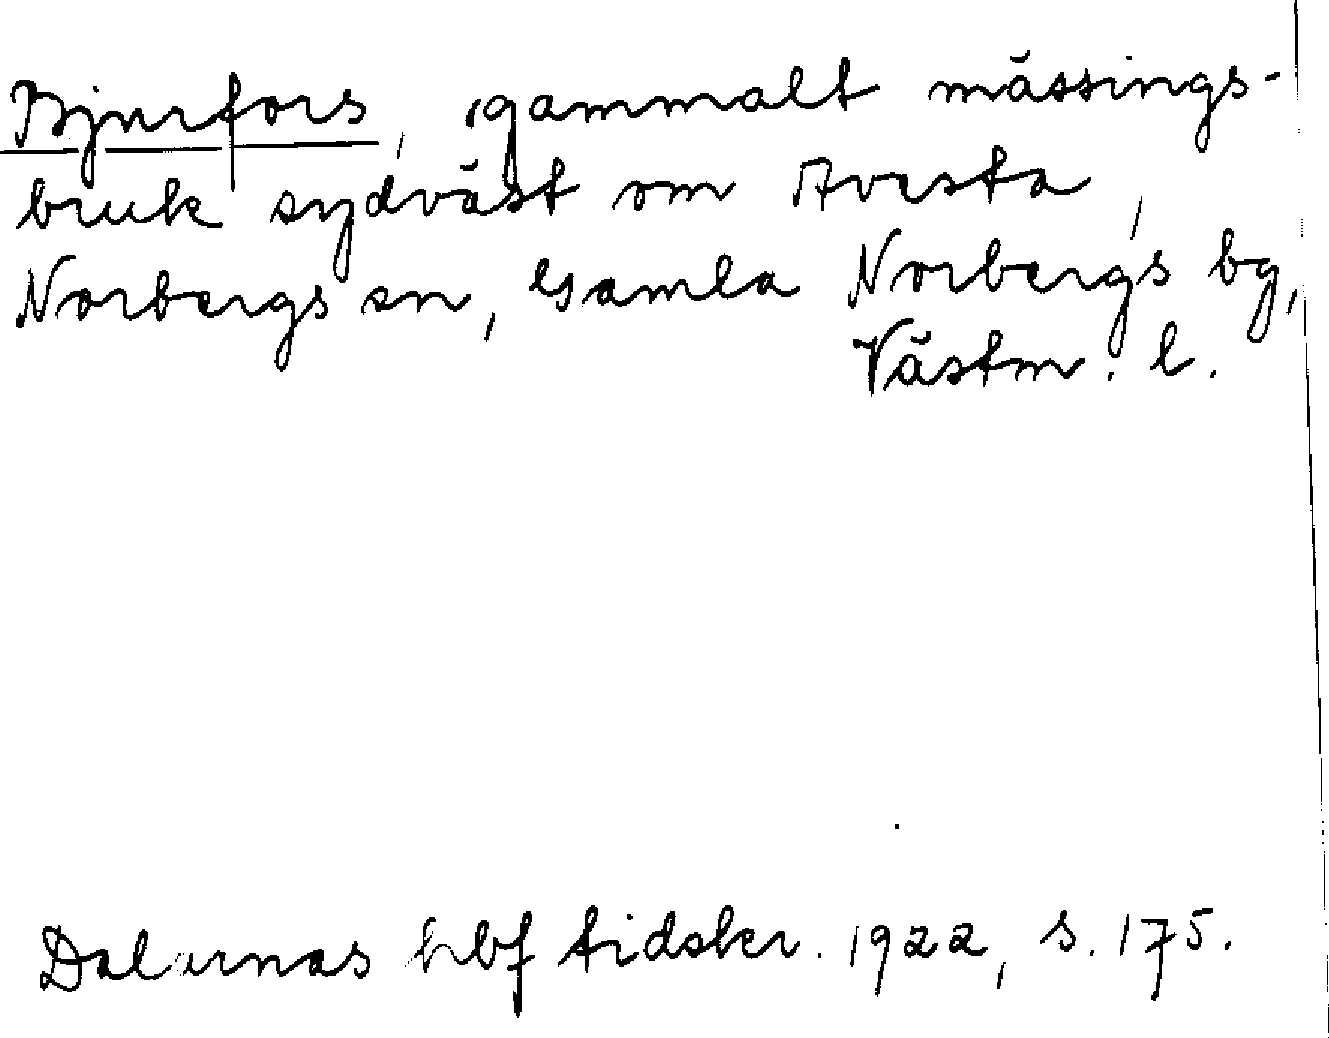 Bjurfors, gammalt mässings-
bruk sydväst om Avesta,
Norbergs sn, Gamla Norbergs bg,
Västm. l.
Dalarnas hbf tidskr. 1922, s. 175.